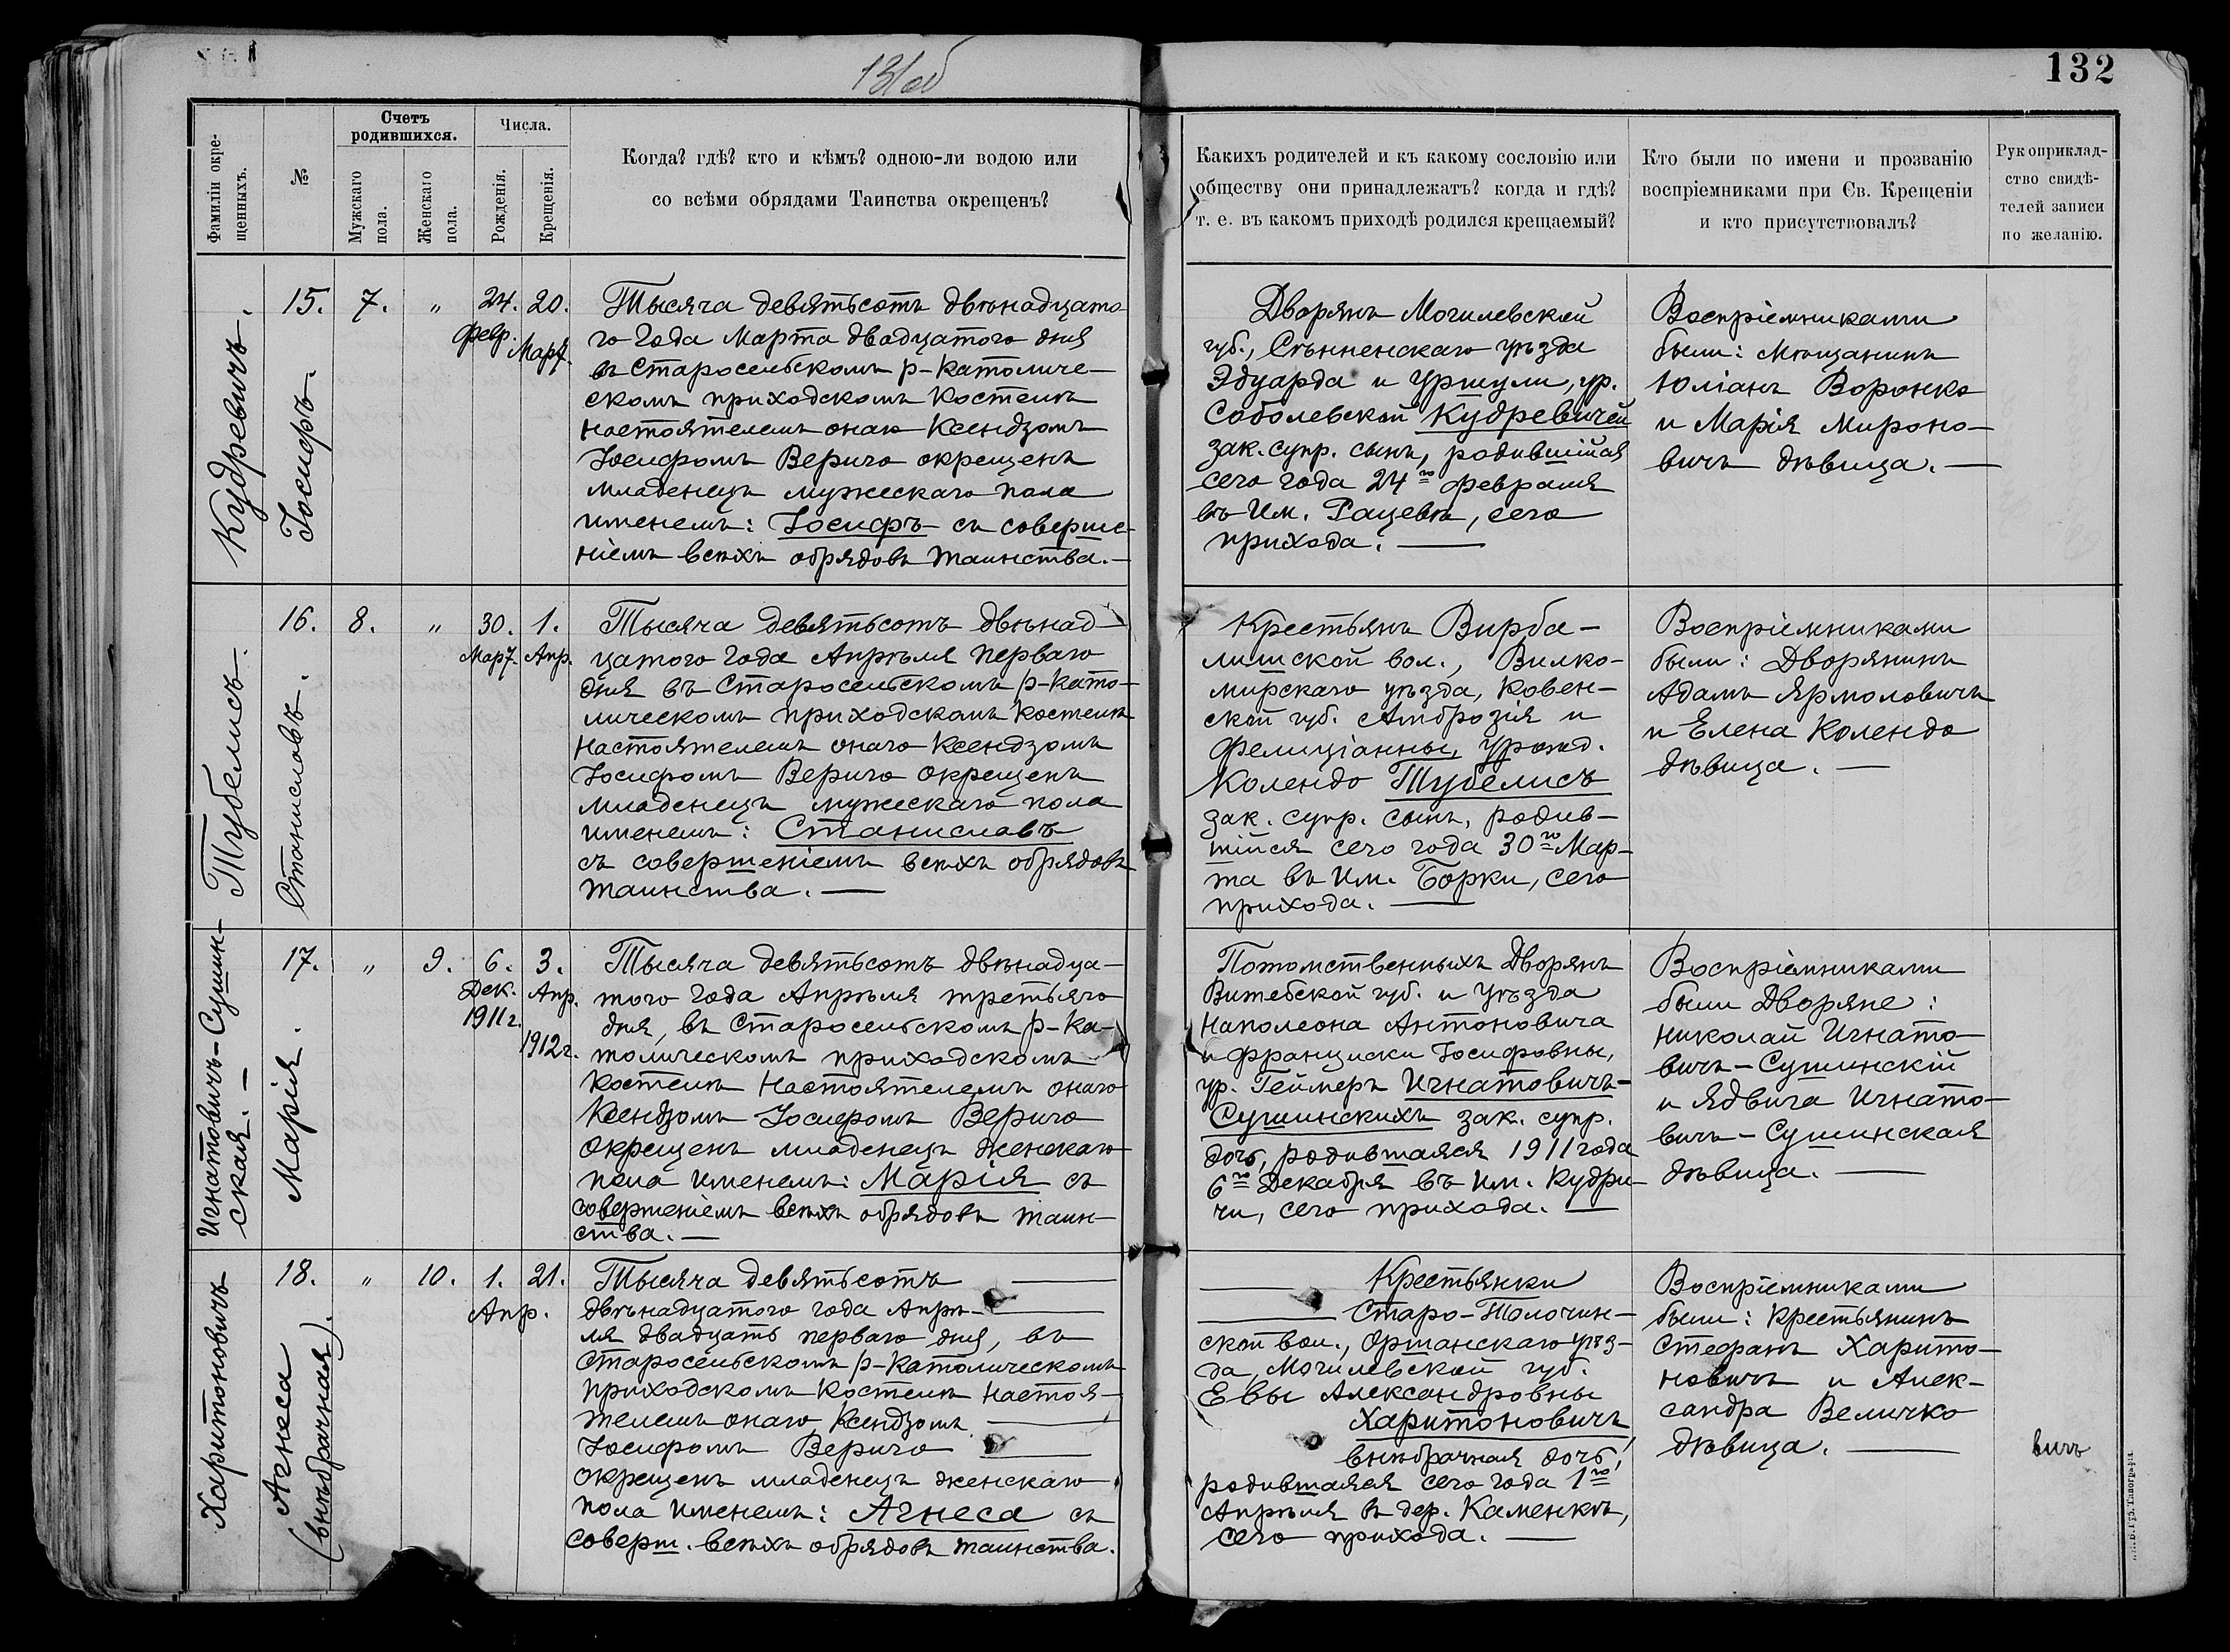 131об
132
Фамиліи окре-
щенныхъ.
№
Счетъ
родившихся.
Мужскаго
пола.
Женскаго
пола.
Числа.
Рожденія.
Крещенія.
Когда? гдѣ? кто и кѣмъ? одною-ли водою или
со всѣми обрядами Таинства окрещенъ?
Какихъ родителей и къ какому сословію или
обществу они принадлежатъ? когда и гдѣ?
т. е. въ какомъ приходѣ родился крещаемый?
Кто были по имени и прозванію
воспріемниками при Св. Крещеніи
и кто присутствовалъ?
Рукоприклад-
ство свидѣ-
телей записи
по желанію.
Кудревичъ.
Іосифъ.
15.
7.
"
24.
Февр.
20.
Март.
Тысяча девятьсотъ двѣнадцато
го года Марта двадцатого дня
въ Старосельскомъ р-католиче-
скомъ приходскомъ костелѣ
настоятелемъ онаго Ксендзомъ
Іосифомъ Верыго окрещенъ
младенецъ мужескаго пола
именемъ: Іосифъ съ соверше-
ніемъ всѣхъ обрядовъ таинства.—
Дворянъ Могилевской
губ., Сѣнненскаго уѣзда
Эдуарда и Уршули, ур.
Соболевской Кудревичей
зак. супр. сынъ, родившійся
сего года 24го февраля
въ им. Рацевѣ, сего
прихода. —
Воспріемниками
были: мѣщанинъ
Юліанъ Воронко
и Марія Мироно-
вичъ дѣвица. —
Тубелисъ.
Станиславъ.
16.
8.
"
30.
Март.
1.
Апр.
Тысяча девятьсотъ двѣнад-
цатого года Апрѣля перваго
дня въ Старосельскомъ р-като-
лическомъ приходскомъ костелѣ
настоятелемъ онаго Ксендзомъ
Іосифомъ Верыго окрещенъ
младенецъ мужескаго пола
именемъ: Станиславъ
съ совершеніемъ всѣхъ обрядовъ
таинства. —
Крестьянъ Вирба-
лишской вол., Вилко-
мирскаго уѣзда, Ковен-
ской губ. Амброзія и
Фелиціанны, урожд.
Колендо Тубелисъ
зак. супр. сынъ, родив-
шійся сего года 30го Мар-
та въ им. Борки, сего
прихода. —
Воспріемниками
были: Дворянинъ
Адамъ Ярмоловичъ
и Елена Колендо
дѣвица. —
Игнатовичъ-Сушин-
ская. —
Марія.
17.
"
9.
6.
Дек.
1911г.
3.
Апр.
1912г.
Тысяча девятьсотъ двѣнадца-
того года Апрѣля третьяго
дня, въ Старосельскомъ р-ка-
толическомъ приходскомъ
костелѣ настоятелемъ онаго
Ксендзомъ Іосифомъ Верыго
окрещенъ младенецъ женскаго
пола именемъ: Марія съ
совершеніемъ всѣхъ обрядовъ таин-
ства. —
Потомственныхъ Дворянъ
Витебской губ. и уѣзда
Наполеона Антоновича
и Франциски Іосифовны,
ур. Геймеръ Игнатовичъ-
Сушинскихъ зак. супр.
дочь, родившаяся 1911 года
6го Декабря въ им. Кудри-
чи, сего прихода. —
Воспріемниками
были Дворяне:
Николай Игнато-
вичъ-Сушинскій
и Ядвига Игнато-
вичъ-Сушинская
дѣвица. —
Харитоновичъ
Агнеса
(внѣбрачная).
18.
"
10.
1.
21.
Апр.
Тысяча девятьсотъ —
двѣнадцатого года Апрѣ-—
ля двадцать перваго дня, въ
Старосельскомъ р-католическомъ
приходскомъ костелѣ настоя-
телемъ онаго Ксендзомъ —
Іосифомъ Верыго —
окрещенъ младенецъ женскаго
пола именемъ: Агнеса съ
соверш. всѣхъ обрядовъ таинства.
— Крестьянки
— Старо-Толочин-
ской вол., Оршанскаго уѣз-
да, Могилевской губ.
Евы Александровны
Харитоновичъ,
внѣбрачная дочь,
родившаяся сего года 1го
Апрѣля въ дер. Каменкѣ,
сего прихода. —
Воспріемниками
были: крестьянинъ
Стефанъ Харито-
новичъ и Алек-
сандра Величко
дѣвица. —
вичъ